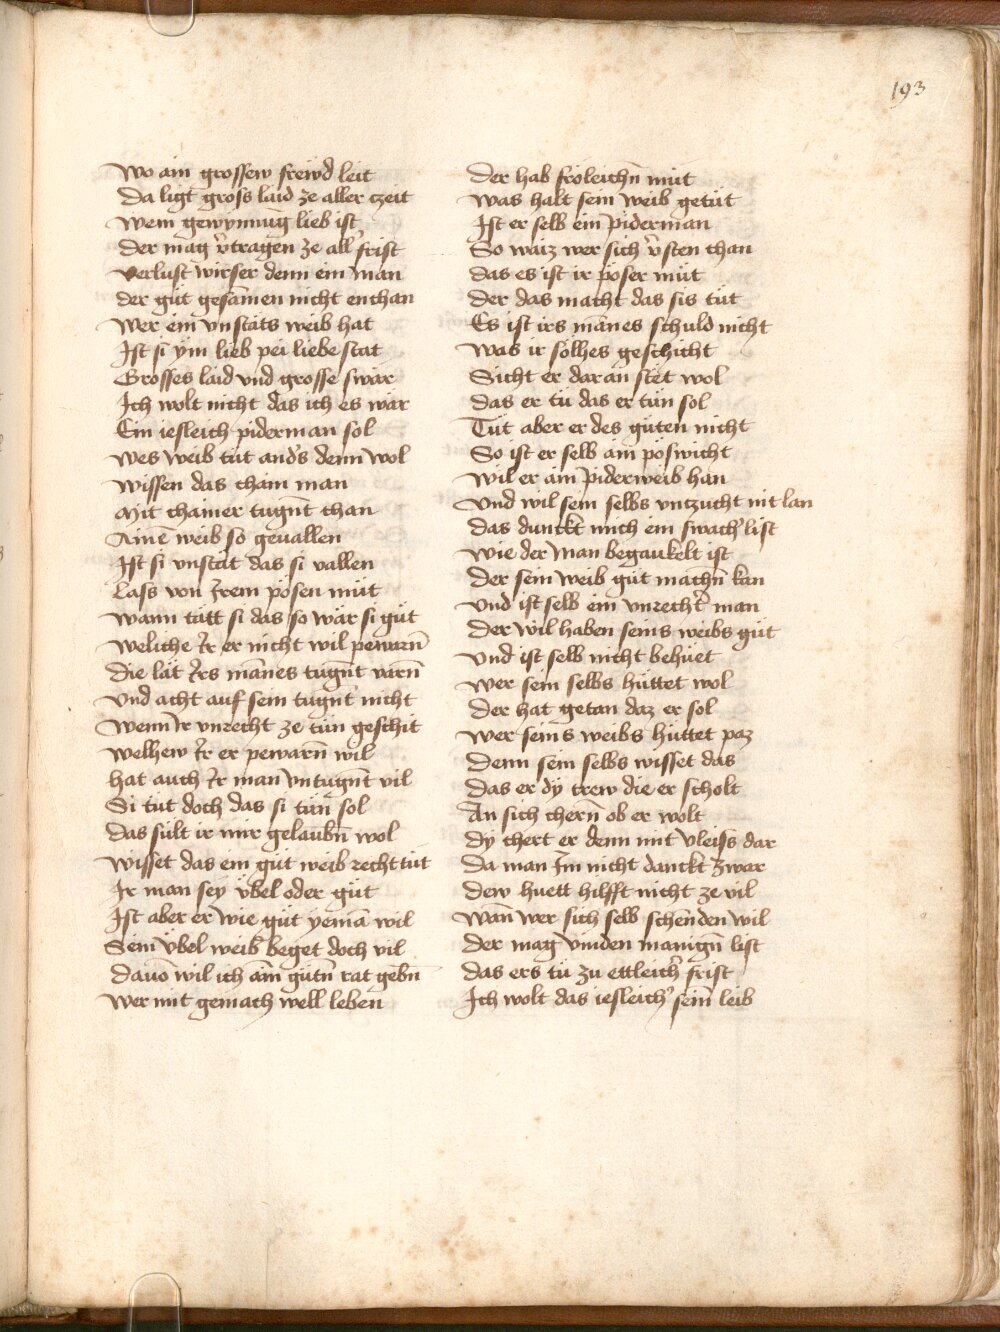 193
Wo ain grossew frewd leit
Da ligt gross laid ze aller czeit
Wem gewynnūg lieb ist
Der mag v̉tragen ze all̉ frist
Verlust wirser denn ein man
der gůt gesamen nicht enchan
Wer ein vnstäts weib hat
Ist si ym lieb pei liebe stat
Grosses laid vnd grosse swär
Ich wolt nicht das ich es wär
Ein iesleich piderman sol
Wes weib tůt and̉s denn wol
Wissen das cham man
Mit chainer tugn̄t chan
Ainē weib so geuallen
Ist si vnstät das si vallen
Lass von Irem pösen můt
Wann tütt si das so wär si gůt
Weliche Ir er nicht wil pewarn̄
Die lät Irs mānes tugn̄t varn̄
Vnd acht auf sein tugn̄t nicht
Wenn Ir vnrecht ze tůn geschit
Welhew Ir er pewarn̄ wil
hat auch Ir man vntugn̄t vil
Si tůt doch das si tůn sol
Das sült ir mir gelaubn̄ wol
Wisset das ein gůt weib recht tůt
Ir man sey v̈bel oder gůt
Ist aber er wie gůt yemā wil
Sein v̈bel weib beget doch vil
Dauō wil ich aim gůtn̄ rat gebn̄
Wer mit gemach well leben
Der hab fröleichn̄ můt
Was halt sein weib getůt
Ist er selb ein piderman
So waiz wer sich v̉sten chan
Das es ist ir pöser můt
Der das macht das sis tůt
Es ist irs mānes schuld nicht
Was ir solhes geschicht
Sicht er daran stet wol
Das er tů das er tůn sol
Tůt aber er des gůten nicht
So ist er selb ain pöswicht
Wil er ain piderweib han
Vnd wil sein selbs vnczucht nit lan
Das dunckt mich ein swach̉ list
Wie der man begaukelt ist
Der sein weib gůt machn̄ kan
Vnd ist selb ein vnrecht̉ man
Der wil haben seins weibs gůt
Vnd ist selb nicht behüet
Wer sein selbs hüttet wol
Der hat getan daz er sol
Wer seins weibs hüttet paz
Denn sein selbs wisset das
Das er dy trew die er scholt
An sich chern̄ ob er wolt
Dy chert er denn mit vleiss dar
Da man Im nicht danckt zwar
Dew huett hilfft nicht ze vil
Wan̄ wer sich selb schenden wil
Der mag vinden manign̄ list
Das ers tů zu ettleich̉ frist
Ich wolt das iesleich̉ sein̄ leib